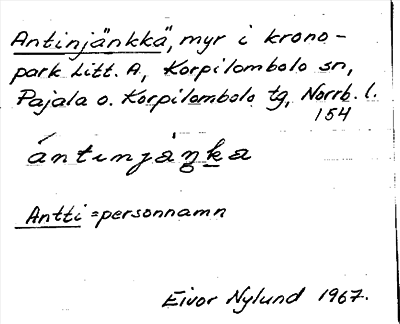 Antinjänkkä, myr i krono-
park Litt. A, Korpilombolo sn,
Pajala o. Korpilombolo tg, Norrb. l.
154
ántinjäŋka
Antti = personnamn
Eivor Nylund 1967.